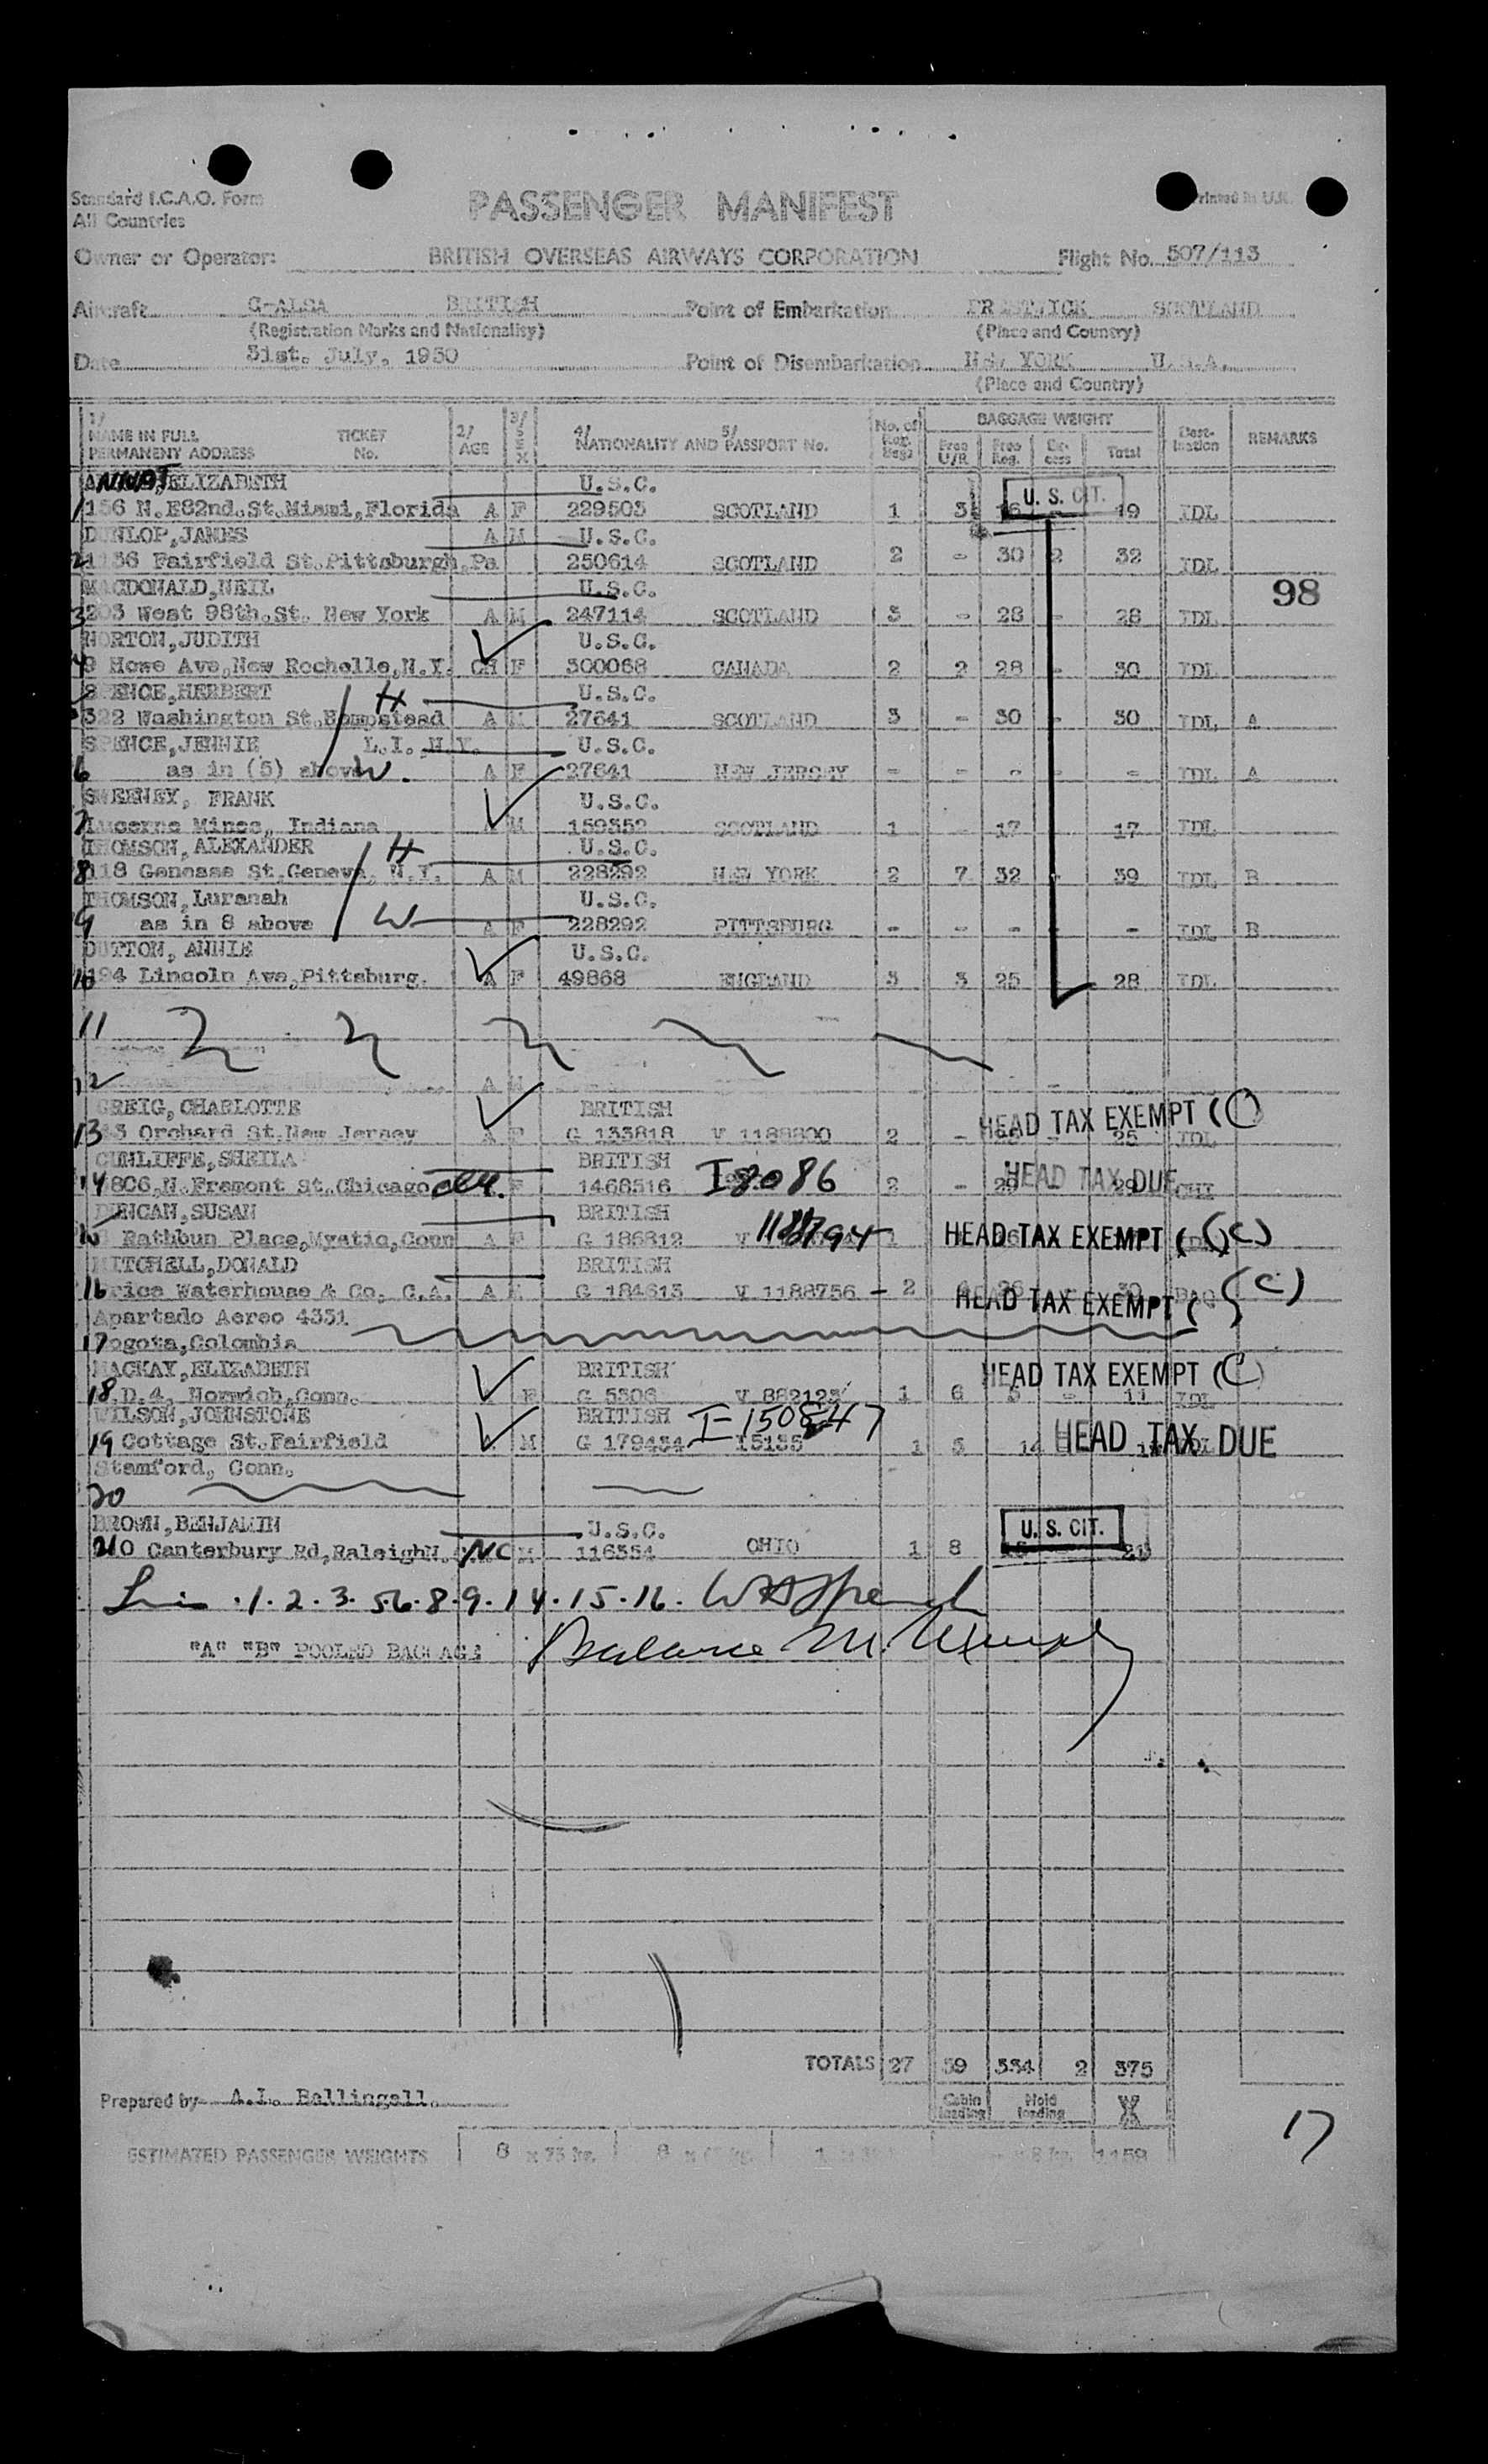 Standard I.C.A.O. Form
All Countries
PASSENGER MANIFEST
Printed in U.K.
Owner or Operator: BRITISH OVERSEAS AIRWAYS CORPORATION Flight No. 507/113
Aircraft G-ALSA BRITISH Point of Embarkation PRESTWICK SCOTLAND
(Registration Marks and Nationality) (Place and Country)
Date 31st. July, 1950 Point of Disembarkation NEW YORK U.S.A.
(Place and Country)
1/ NAME IN FULL PERMANENT ADDRESS TICKET No. 2/ AGE 3/ SEX 4/ NATIONALITY AND 5/ PASSPORT No. No. of Reg. Bags BAGGAGE WEIGHT Free U/R Free Reg. Ex-cess Total Dest-ination REMARKS
ELIZABETH U.S.C.
U. S. CIT.
1 156 N.E82nd.St.Miami,Florida A F 229503 SCOTLAND 1 3 16 - 19 IDL
DUNLOP,JAMES A M U.S.C.
2 1136 Fairfield St.Pittsburgh,Pa 250614 SCOTLAND 2 - 30 2 32 IDL
MACDONALD,NEIL U.S.C.
98
3 203 West 98th.St. New York A M 247114 SCOTLAND 3 - 28 - 28 IDL
NORTON,JUDITH U.S.C.
4 9 Howe Ave,New Rochelle,N.Y. CH F 300068 CANADA 2 2 28 - 30 IDL
SPENCE,HERBERT H U.S.C.
322 Washington St.Hempstead A M 27641 SCOTLAND 3 - 30 - 30 IDL A
SPENCE,JENNIE L.I. N.Y. U.S.C.
6 as in (5) above W. A F 27641 NEW JERSEY - - - - - IDL A
SWEENEY, FRANK U.S.C.
7 Lucerne Mines, Indiana M 159352 SCOTLAND 1 - 17 17 IDL
THOMSON, ALEXANDER H U.S.C.
8 118 Genesse St.Geneva, N.Y. A M 228292 NEW YORK 2 7 32 - 39 IDL B
THOMSON, Luranah U.S.C.
9 as in 8 above W A F 228292 PITTSBURG - - - - - IDL B
DUTTON, ANNIE U.S.C.
10 194 Lincoln Ave,Pittsburg. A F 49868 ENGLAND 3 3 25 28 IDL
11
12 A M
GREIG, CHARLOTTE BRITISH
HEAD TAX EXEMPT (C)
13 Orchard St.New Jersey A F G 133818 V 1188800 2 - 25 - 25 IDL
CUNLIFFE,SHEILA BRITISH
HEAD TAX DUE
14 806,N.Fremont St.Chicago F 1468516 I 8086 2 - 29 29 CHI
DUNCAN, SUSAN BRITISH
Rathbun Place,Mystic,Conn A F G 186812 V 1188794 1 HEAD TAX EXEMPT (C)
MITCHELL,DONALD BRITISH
16 Price Waterhouse & Co, C.A. A M G 184613 V 1188756 - 2 4 26 30 BAQ
HEAD TAX EXEMPT (C)
Apartado Aereo 4331
17 Bogota,Colombia
MACKAY, ELIZABETH BRITISH
HEAD TAX EXEMPT (C)
18 .D.4, Norwich,Conn. F G 5306 V 882123 1 6 5 - 11 IDL
WILSON,JOHNSTONE BRITISH I-150847
19 Cottage St.Fairfield M G 179434 I5135 1 3 14 HEAD TAX DUE
Stamford, Conn.
20
BROWN,BENJAMIN U.S.C.
U. S. CIT.
210 Canterbury Rd,Raleigh NC M 116354 OHIO 1 8
.1.2.3.5.6.8.9.14.15.16.
"A" "B" POOLED BAGGAGE Balance M.
TOTALS 27 39 334 2 375
Prepared by A.I. Ballingall.
Cabin loading Hold loading X
17
ESTIMATED PASSENGER WEIGHTS 8 x 75 kg. 8 x 65 kg. 1 8 kg. 1159